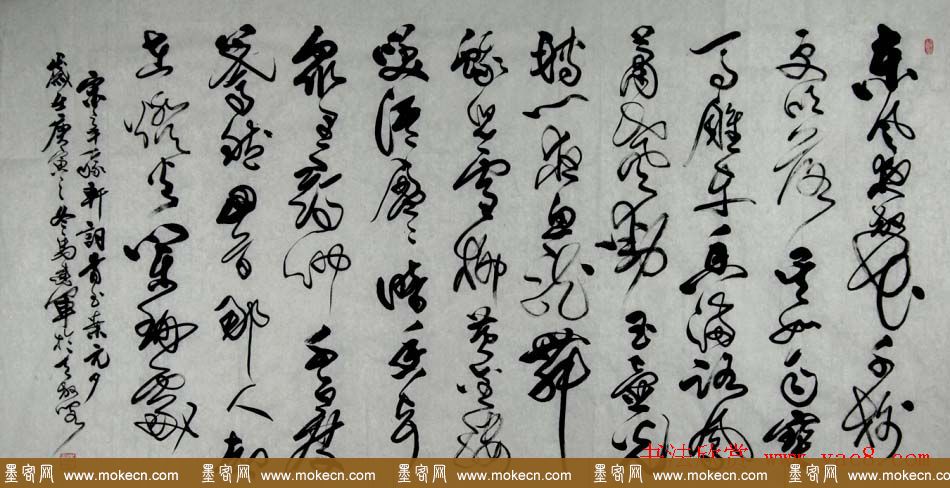 東風夜放花千樹
更吹落星如雨寶
馬雕車香滿路鳳
簫聲動玉壺光
轉一夜魚龍舞
蛾兒雪柳黃金縷
笑語盈盈暗香去
眾里尋他千百度
驀然回首那人却
在燈火闌珊處
宋辛稼軒詞青玉案元夕
歲在庚寅之冬馬建軍於
书法欣赏 www.yac8.com
墨客网 www.mokecn.com 墨客网 www.mokecn.com 墨客网 www.mokecn.com 墨客网 www.mokecn.com 墨客网 www.mokecn.com